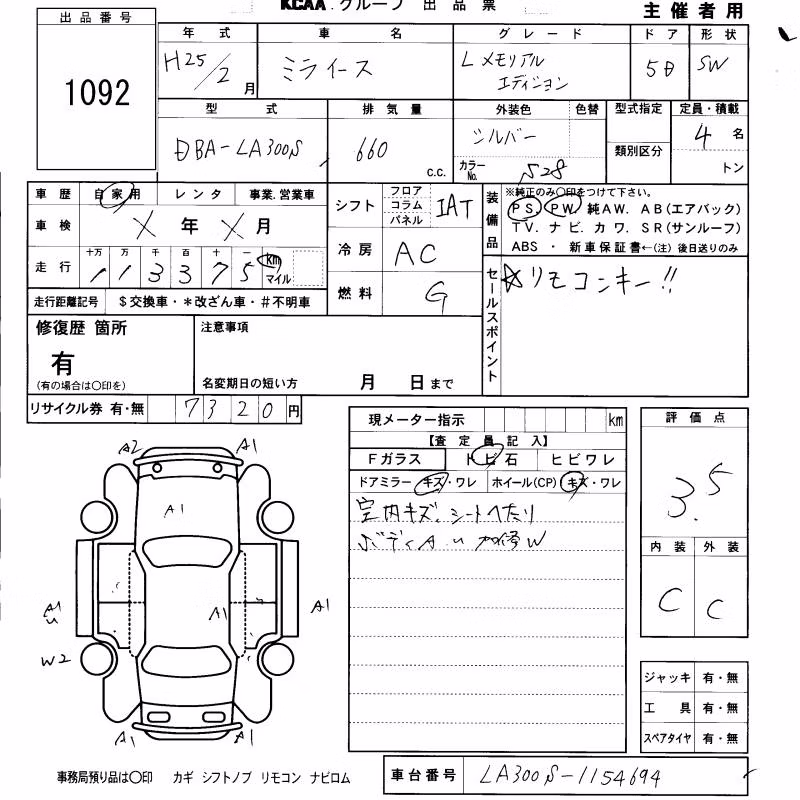 KCAA.グループ 出品票
主催者用
出品番号
1092
年式 車名 グレード ドア 形状
H25/2月 ミライース Lメモリアルエディション 5D SW
型式 排気量 外装色 色替 型式指定 定員・積載
DBA-LA300S 660 C.C. シルバー 4名
類別区分
カラーNo. S28 トン
車歴 自家用 レンタ 事業.営業車
車検 X年X月
走行 十万 万 千 百 十 一
113375 km マイル
走行距離記号 $交換車・*改ざん車・#不明車
シフト フロア コラム パネル IAT
冷房 AC
燃料 G
装備品
※純正のみ〇印をつけて下さい。
PS. PW. 純AW. AB(エアバック)
TV. ナビ. カワ. SR(サンルーフ)
ABS ・ 新車保証書←(注)後日送りのみ
セールスポイント
☆リモコンキー!!
修復歴 箇所
有
(有の場合は〇印を)
注意事項
名変期日の短い方 月 日まで
リサイクル券 有・無 7320円
現メーター指示 km
【査定員記入】
Fガラス トビ石 ヒビワレ
ドアミラー キズ・ワレ ホイール(CP) キズ・ワレ
室内キズ、シートヘたり
ボディAu 加修W
評価点
3.5
内装 外装
C C
ジャッキ 有・無
工具 有・無
スペアタイヤ 有・無
A2 A1
A1
A1 u A1 A1
W2
A1 A1
事務局預り品は〇印 カギ シフトノブ リモコン ナビロム
車台番号 LA300S-1154694